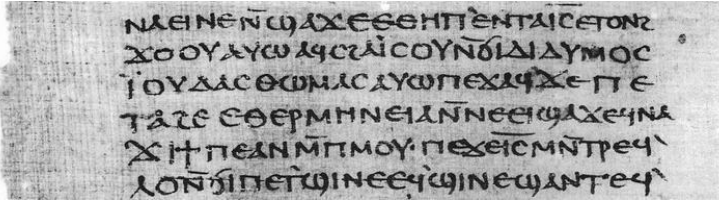 ⲛⲁⲉⲓⲛⲉ ⲛ̄ϣⲁϫⲉ ⲉⲑⲏⲡ ⲉⲛⲧⲁⲓ̅ⲥ̅ ⲉⲧⲟⲛϩ
ϫⲟⲟⲩ ⲁⲩⲱ ⲁϥⲥϩⲁⲓ̈ⲥⲟⲩ ⲛ̄ϭⲓ ⲇⲓⲇⲩⲙⲟⲥ
ⲓ̈ⲟⲩⲇⲁⲥ ⲑⲱⲙⲁⲥ ⲁⲩⲱ ⲡⲉϫⲁϥ ϫⲉ ⲡⲉ
ⲧⲁϩⲉ ⲉⲑⲉⲣⲙⲏⲛⲉⲓⲁ ⲛ̄ⲛⲉⲉⲓϣⲁϫⲉ ϥⲛⲁ
ϫⲓ ϯⲡⲉ ⲁⲛ ⲙ̄ⲡⲙⲟⲩ· ⲡⲉϫⲉ ⲓ̅ⲥ̅ ⲙⲛ̄ⲧⲣⲉϥ
ⲗⲟ ⲛ̄ϭⲓ ⲡⲉⲧϣⲓⲛⲉ ⲉϥϣⲓⲛⲉ ϣⲁⲛⲧⲉϥ